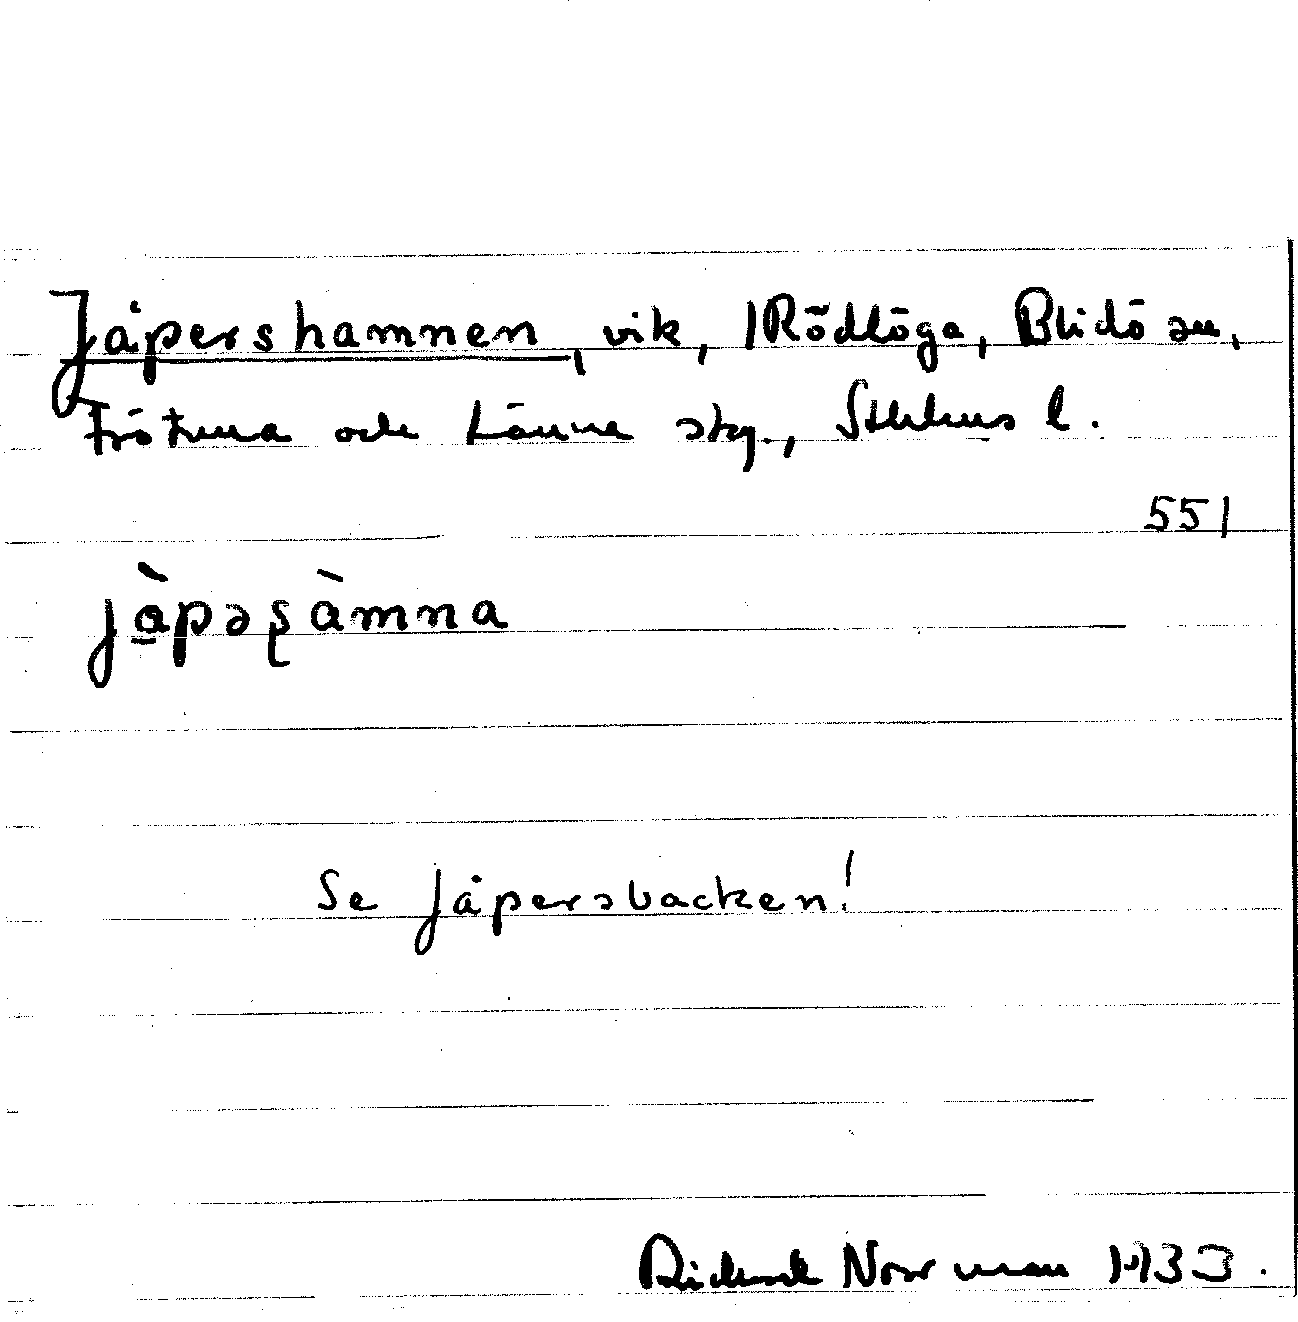 Jåpershamnen, vik, Rödlöga, Blidö sn,
Frötuna och Länna skg., Sthlms l.
551
jàpəʂàmna
Se Jåpersbacken!
Rickard Norrman 1933.